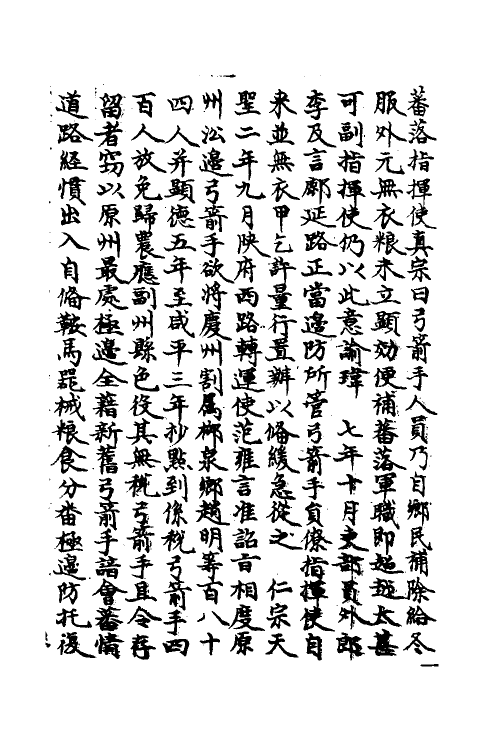 蕃落指揮使真宗曰弓箭手人員乃自鄉民補除給冬
服外元無衣粮未立顯効便補蕃落軍職即超越太甚
可副指揮使仍以此意諭瑋　七年十月吏部員外郎
李及言鄜延路正當邊防所管弓箭手負僚指揮使自
来並無衣甲乞許量行置辦以備緩急從之　仁宗天
聖二年九月陝府西路轉運使范雍言准詔旨相度原
州沿邊弓箭手欲將慶州割属栁泉鄉趙明等百八十
四人并顯德五年至咸平三年抄㸃到係稅弓箭手四
百人放免歸農應副州縣色役其無稅弓箭手且令存
留者竊以原州最處極邊全藉新舊弓箭手諳會蕃情
道路經慣出入自備鞍馬噐械粮食分畨極邊防托復
一